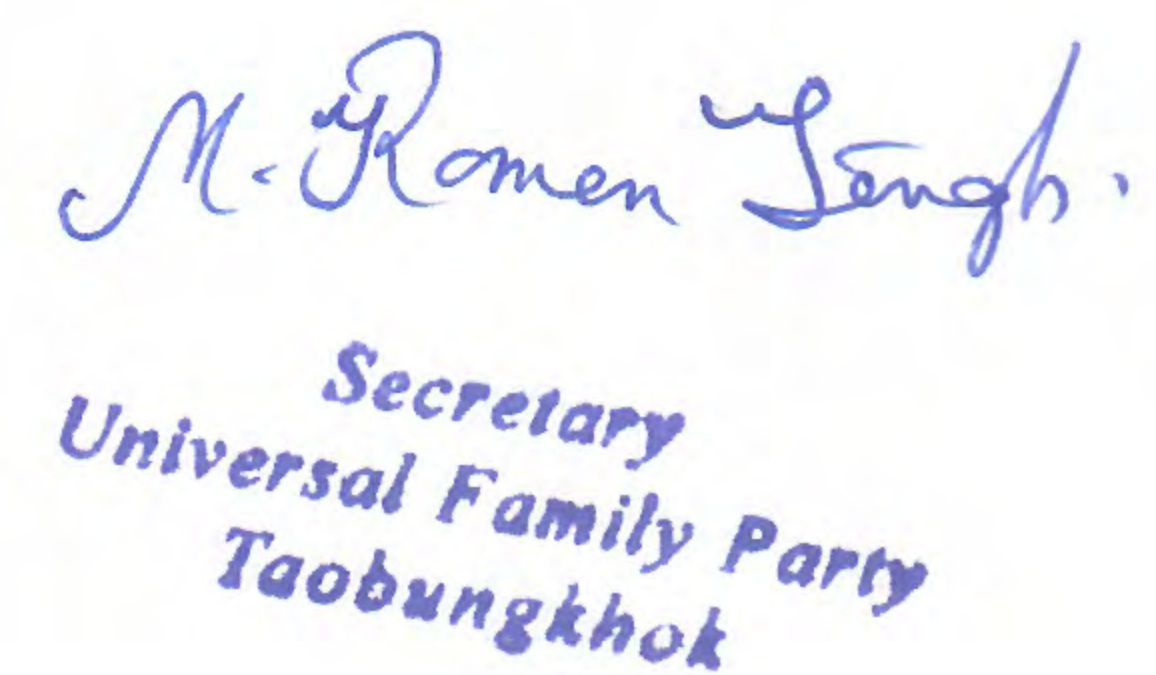 M. Romen Singh.
Secretary
Universal Family Party
Taobungkhok